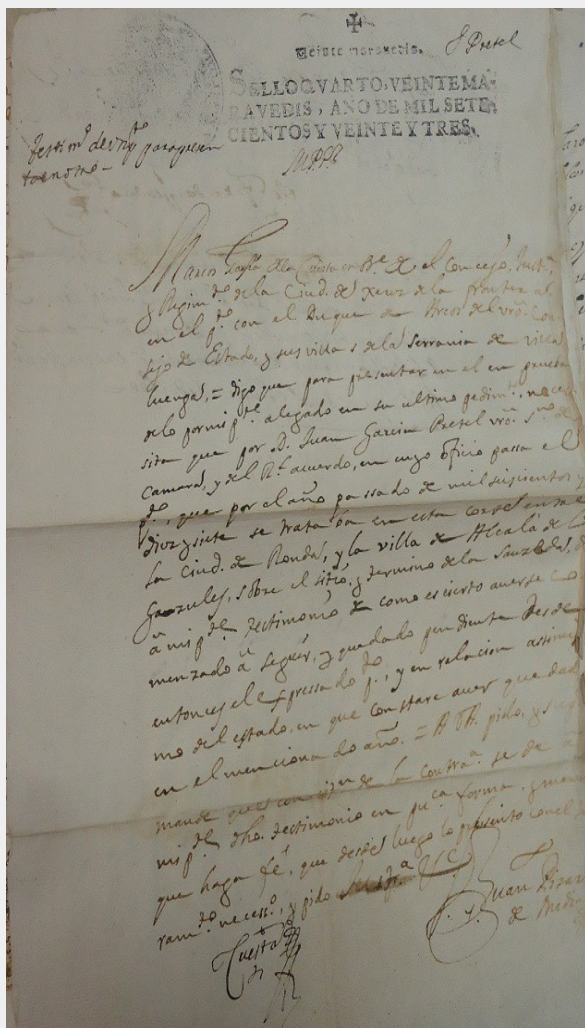 Veinte maravedis.
Pretel
SELLO QVARTO, VEINTE MA-
RAVEDIS, AÑO DE MIL SETE-
CIENTOS Y VEINTE Y TRES.
Testimº de
M.P.S.
Marcos de la Cuesta en nᵉ de el Concejo, Justª
y Regimᵗº de la Ciud. de Xerez de la frontera
en el pᵗº con el Duque de Arcos del vrº. Con
sejo de Estado, y sus villas de la Serrania de villa
luenga, = digo que para presentar en el en prueba
de lo por mi pᵗᵉ alegado en su ultimo pedimᵗº, neces
sita que por D. Juan Garcia Pretel vrº. sⁿº de
Camara, y del Rˡ acuerdo, en cuyo oficio passa el
pᵗº, que por el año passado de mil seiscientos y
diez y siete se trataba en esta corte entre
la Ciud. de Ronda, y la villa de Alcalá de los
Gazules, sobre el sitio, y termino de la Sauzeda,
a mi pᵗᵉ testimonio de como es cierto averse co
menzado a seguir, y quedado pendiente desde
entonces el expressado pᵗº, y en relacion assimis
mo del estado, en que constare aver quedado
en el mencionado año. = A V.A. pido, y supᶜº
mande que con de la contrª se de a
mi pᵗᵉ dho. testimonio en pᵘᶜᵃ forma, y manera
que haga fe, que desde luego lo presento con el Ju
ramᵗº necessº, y pido Justª &c
Cuesta
Juan
de